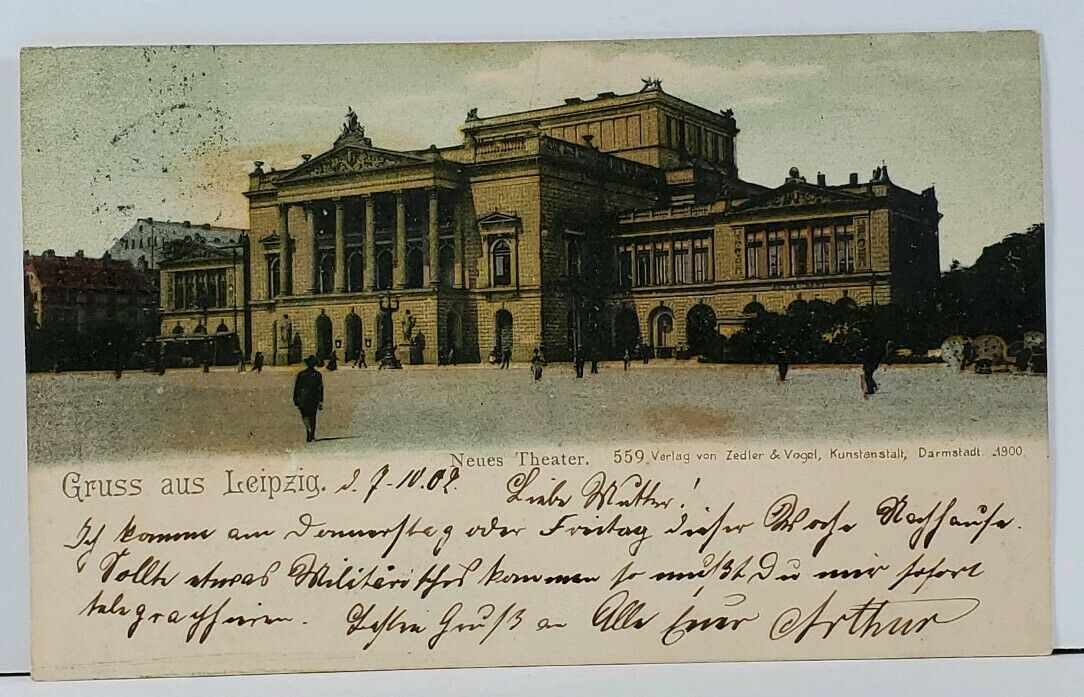 Neues Theater. 559. Verlag von Zedler & Vogel, Kunstanstalt, Darmstadt. 1900.
Gruss aus Leipzig. d. 7-10.02. Liebe Mutter!
Ich komme am Donnerstag oder Freitag dieser Woche Nachhause.
Sollte etwas Militärisches kommen so mußt Du mir sofort
telegraphieren. Gruß an Alle Euer Arthur